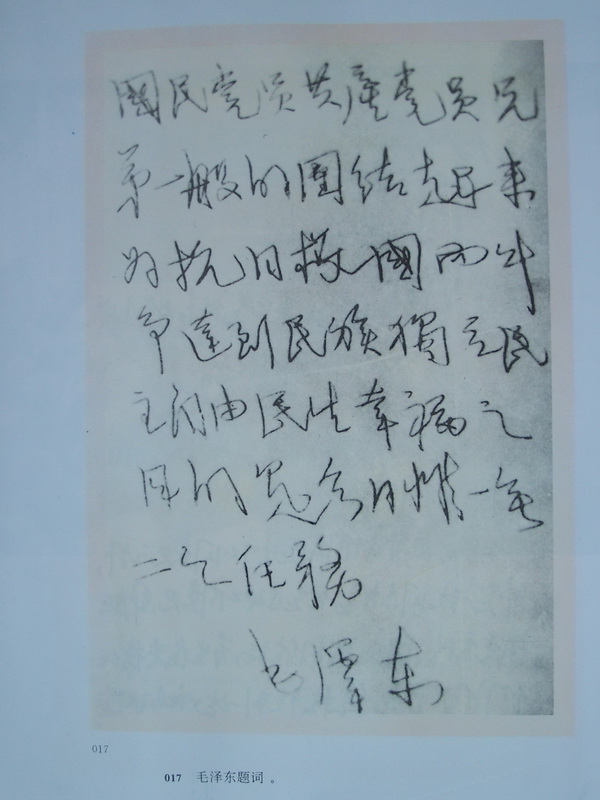 國民党员共產党员兄
弟一般的團结起来
为抗日救國而斗
争達到民族獨立民
主自由民生幸福之
目的是今日惟一无
二之任務
毛澤东
017
017 毛泽东题词。